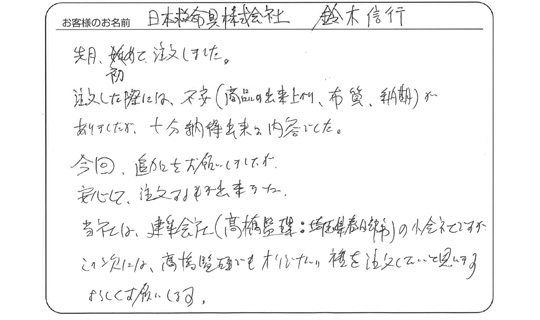 お客様のお名前 日本救命具株式会社 鈴木信行
先月、始めて注文しました。
初
注文した際には、不安(商品の出来上り、布質、納期)が
ありましたが、十分納得出来る内容でした。
今回、追加をお願いしましたが、
安心して、注文する事が出来ました。
当社は、建築会社(髙橋監理:埼玉県春日部市)の小会社ですが
この次には、髙橋監理でもオリジナル 注文していと思います
よろしくお願いします。